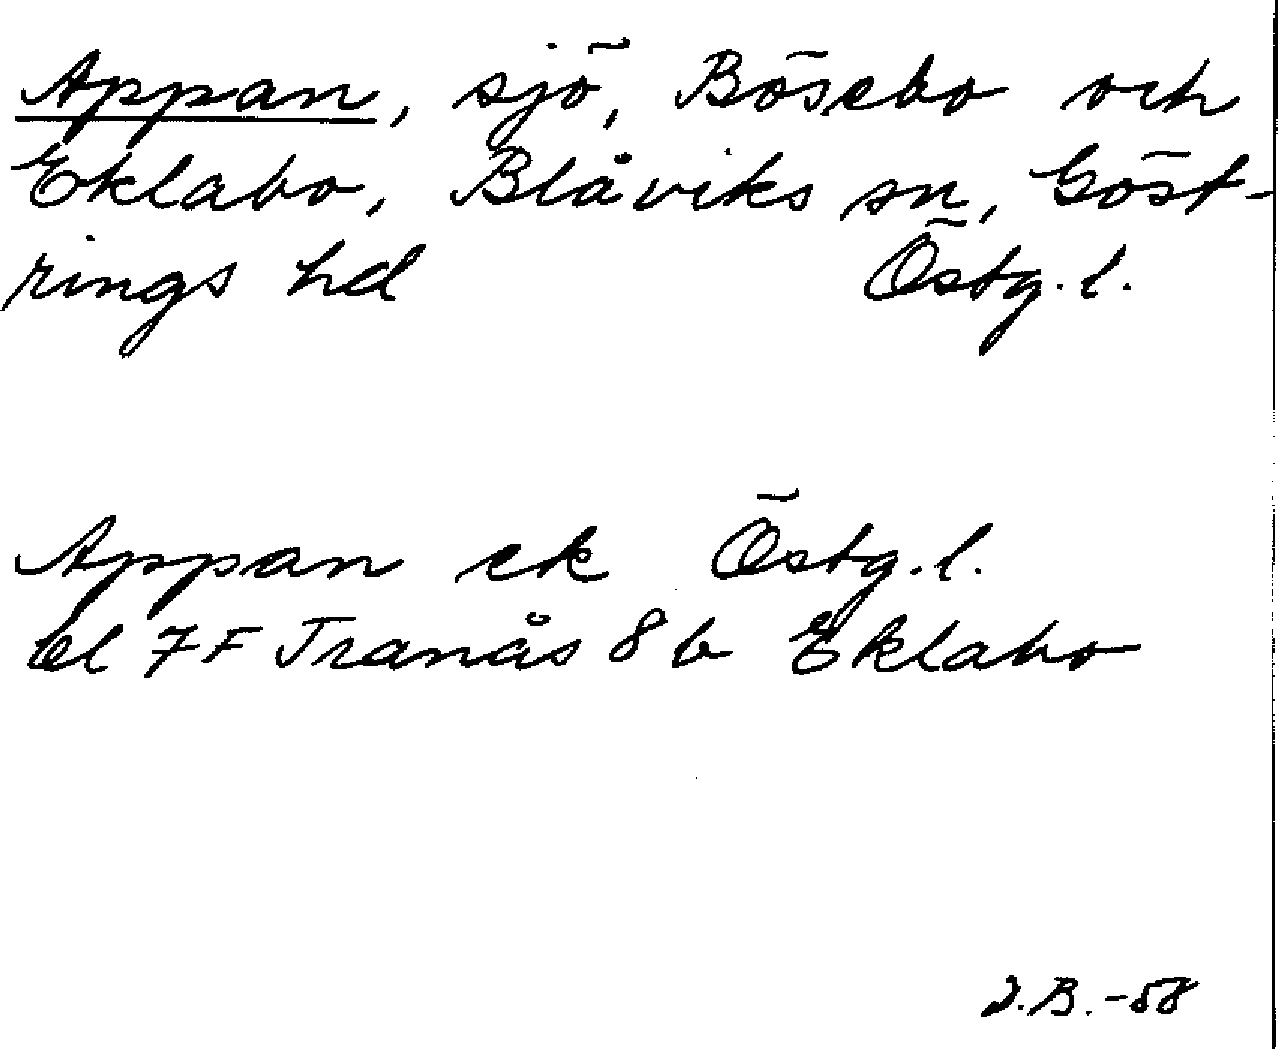 Appan, sjö, Bösebo och
Eklabo, Blåviks sn, Göst-
rings hd Östg. l.
Appan ek Östg. l.
bl 7F Tranås 8b Eklabo
J.B. -58